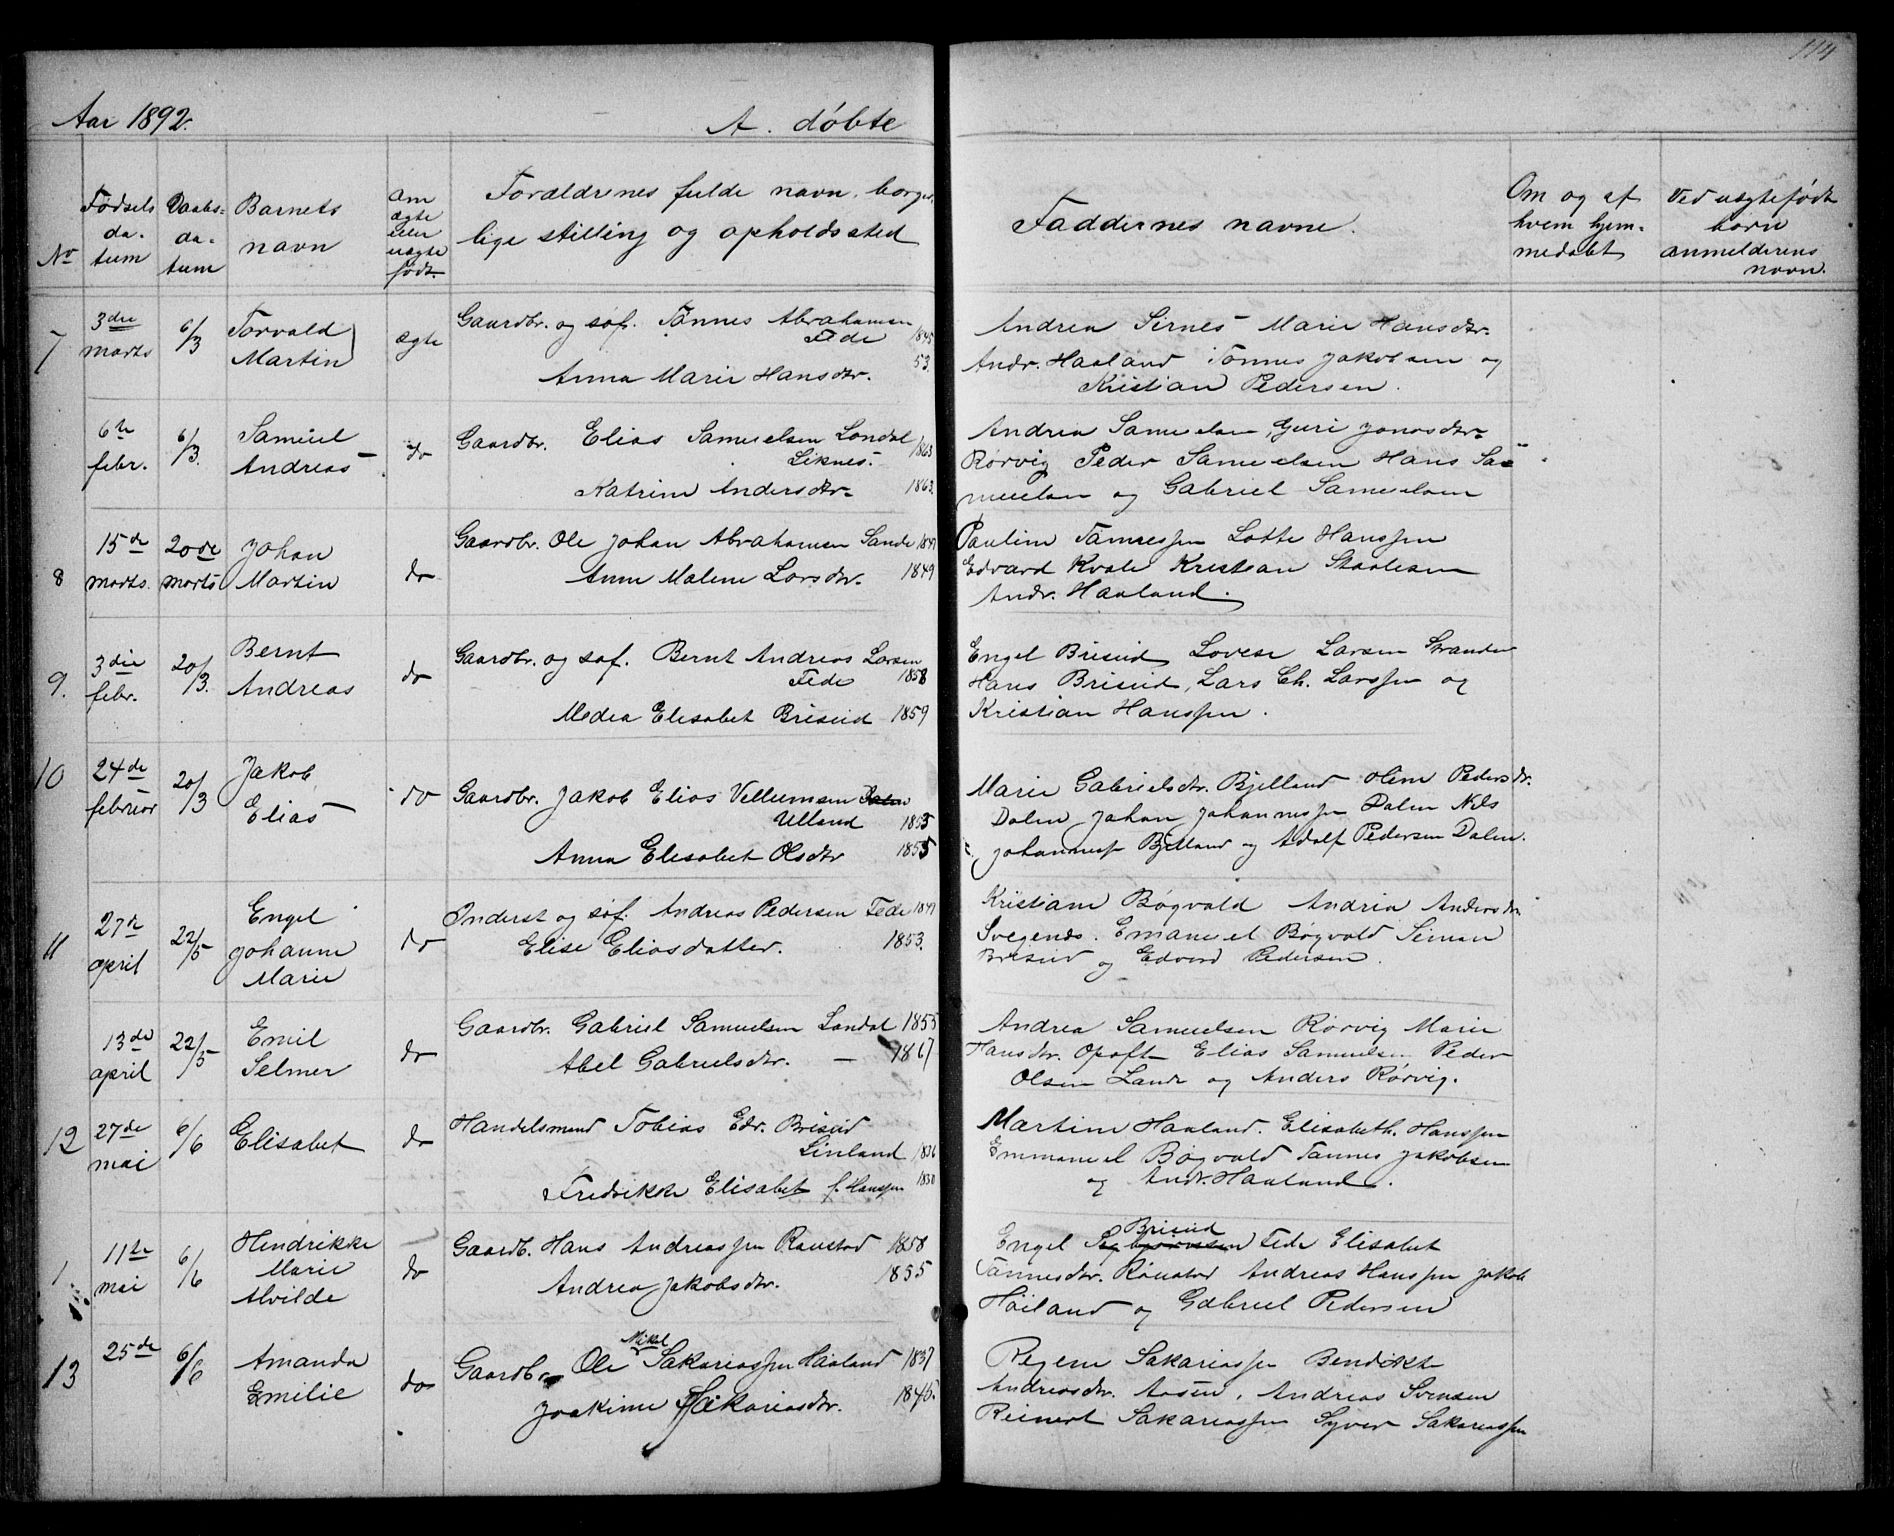 114
Aar 1892.
A. døbte
No
Fødsels
da-
tum
Daabs-
da-
tum
Barnets
navn
Om
ægte
eller
uægte
født.
Forældrenes fulde navn, borger-
lige stilling og opholdssted
Faddernes navne.
Om og af
hvem hjem-
medøbt
Ved uægtefødt
barn
anmelderens
navn.
7
3die
marts
6/3
Torvald
Martin
ægte
Gaardbr. og søf. Tønnes Abrahamsen
Fede 1845
Anna Marie Hansdtr. 53
Andrea Sirnes Marie Hansdtr.
Andr. Haaland Tønnes Jakobsen og
Kristian Pedersen.
6te
febr.
6/3.
Samuel
Andreas
do
Gaardbr. Elias Samuelsen Londal
Liknes. 1863
Katrine Andersdtr. 1863.
Andrea Samuelsen, Guri Jonasdtr.
Rørvig Peder Samuelsen Hans Sa-
muelsen og Gabriel Samuelsen
8
15de
marts.
20de
marts
Johan
Martin
do
Gaardbr. Ole Johan Abrahamsen Sande
Anne Malene Larsdtr. 1849
Pauline Tønnessen Lotte Hanssen
Edvard Kvale Kristian Staalesen
Andr. Haaland.
9.
3die
febr.
20/3.
Bernt
Andreas
do
Gaardbr. og søf. Bernt Andreas Larsen
Fede 1858
Medea Elisabet Briseid 1859
Engel Briseid Lovise Larsen Stranden
Hans Briseid, Lars Ch. Larssen og
Kristian Hanssen.
10
24de
februar
20/3
Jakob
Elias
do
Gaardbr. Jakob Elias Vellumsen Dalen
Ulland 1855
Anna Elisabet Olsdtr 1855
Marie Gabrielsdtr. Bjelland Pedersdtr.
Dalen Johan Johannessen Dalen Nils
Johanness Bjelland og Adolf Pedersen Dalen.
11
27de
april
22/5
Engel
Johanne
Marie
do
Inderst og søf. Andreas Pedersen Fede
Elise Eliasdatter. 1853.
Kristiane Bøgvald Andrea Andersdtr.
Svegende. Emanuel Bøgvald Simon
Briseid og Edvard Pedersen.
13de
april
22/5
Emil
Selmer
do
Gaardbr. Gabriel Samuelsen Londal 1855
Abel Gabrielsdtr. — 1867
Andrea Samuelsen Rørvig Marie
Hansdtr. Opoft Elias Samuelsen Peder
Olsen Lande og Anders Rørvig.
12
27de
mai
6/6
Elisabet
do
Handelsmand Tobias Edv. Briseid
Linland 1836
Fredrikke Elisabet f. Hanssen 1850
Martine Haaland. Elisabeth. Hanssen
Emmanuel Bøgvald Tønnes Jakobsen
og Andr. Haaland.
1
11te
mai
6/6
Hendrikke
Marie
Alvilde
do
Gaardb. Hans Andreassen Raustad 1858
Andrea Jakobsdtr. 1855
Briseid
Engel Fede Elisabet
Tønnesdtr. Røustad Andreas Hanssen Jakob
Høiland og Gabriel Pedersen
13
25de
6/6
Amanda
Emilie
do
Mikal
Gaardbr. Ole Sakariassen Haaland 1837
Joakime Sakariasdtr. 1845.
Regine Sakariassen Bendikte
Andreasdtr. Aasen, Andreas Svensen
Reinert Sakariassen Syver Sakariassen